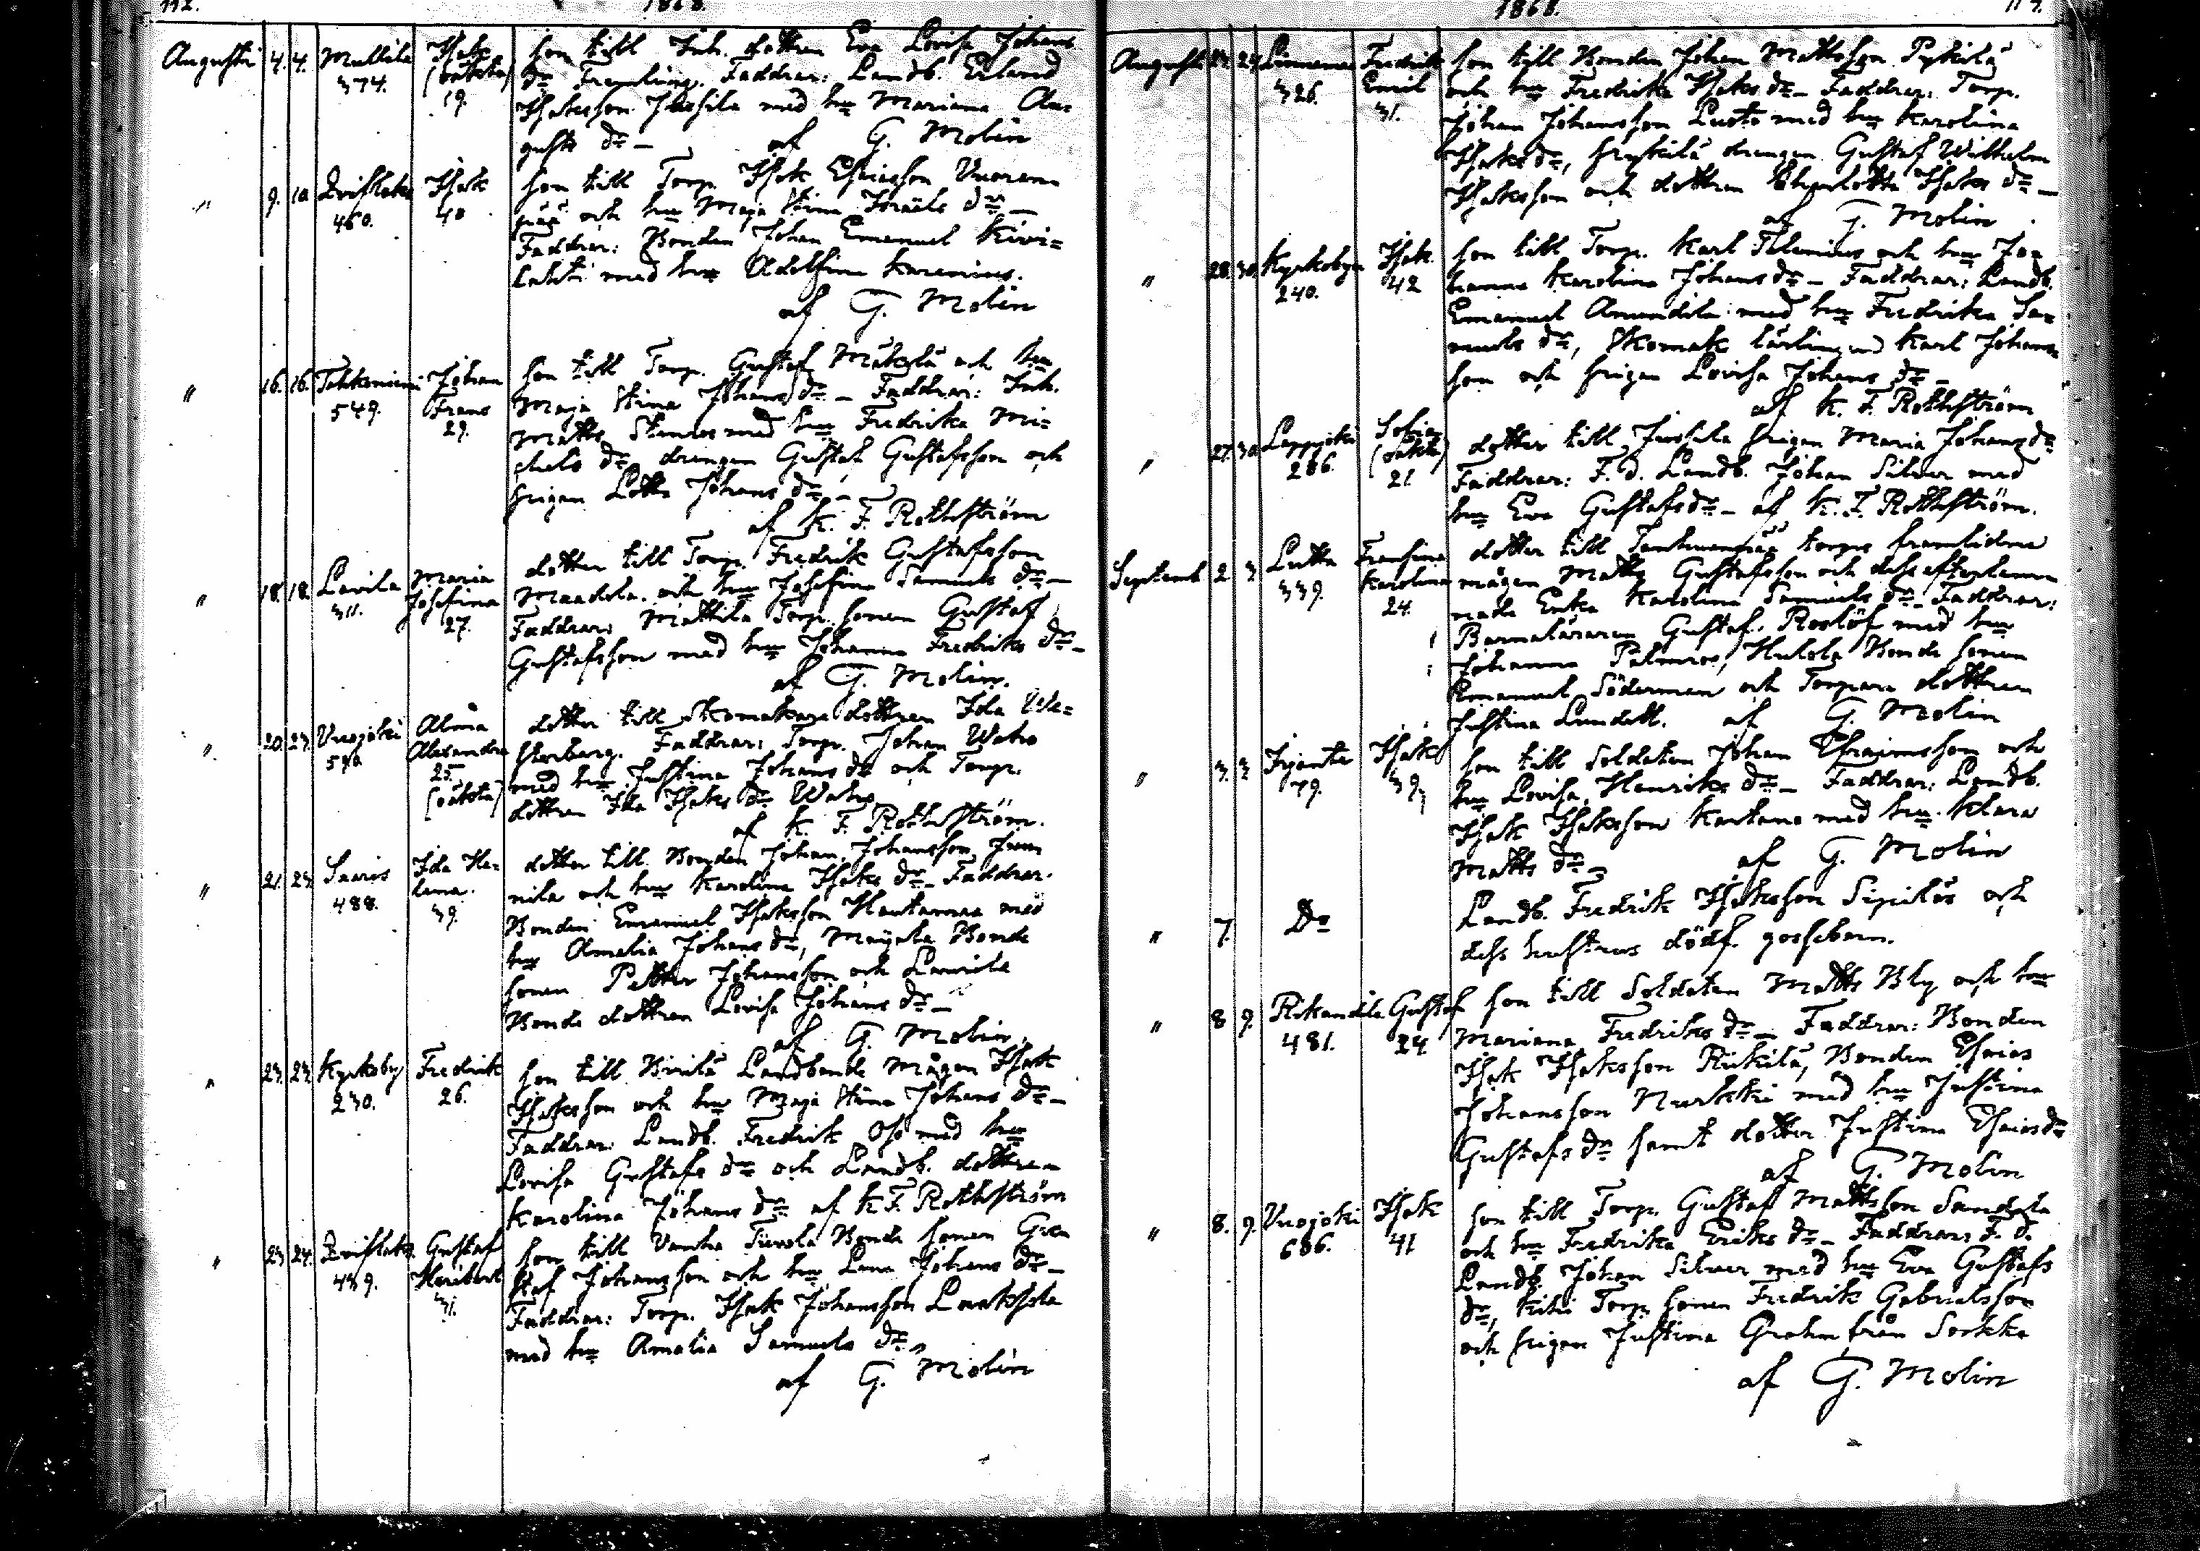 112.
1868.
Augusti 4. 4. Mullila Isak son till Inh. dottren Eva Lovisa Johans
374. (oäkta) dr Fremling. Faddrar: Landb. Erland
19. Isaksson Jussila med hu Mariana Au-
gusts dr – af G. Molin
" 9. 10 Qvistlaks Isak son till Torp. Isak Esaiasson Vuoren-
460. 40 pää och hu Maja Stina Israels dr –
Faddrar: Bonden Johan Emanuel Kivi-
lahti med hu Adelfina Karenius.
af G. Molin
" 16. 16. Johan son till Torp. Gustaf Mäkelä och hu
549. Frans Maja Stina Johans dr – Faddrar: Inh.
29. Matts med hu Fredrika Mi-
chels dr drengen Gustaf Gustafsson och
pigan Lotta Johans dr –
af K. F. Rothström
" 18. 18. Lavila Maria dotter till Torp. Fredrik Gustafsson
311. Josefina Maadela och hu Josefina Samuels dr –
27. Faddrar: Mattila Torp. sonen Gustaf
Gustafsson med hu Johanna Fredriks dr –
af G. Molin.
" 20. 23. Vuojoki Alma dotter till Skomakare dottren Ida We-
590. Alexandra sterberg. Faddrar: Torp. Johan Waho
25. med hu Justina Johans dr och Torp.
(oäkta) dottren Ida Isaks dr Waho
af K. F. Rothström.
" 21. 23. Saaris Ida He- dotter till Bonden Johan Johansson
488. lena. nila och hu Karolina Isaks dr – Faddrar.
39. Bonden Emanuel Isaksson Hautamaa med
hu Amalia Johans dr, Bonde
sonen Petter Johansson och Laurila
Bonde dottren Lovisa Johans dr –
af G. Molin.
" 23. 23. Kyrkoby Fredrik son till Landbonde Mågen Isak
230. 26. Isaksson och hu Maja Stina Johans dr –
Faddrar: Landb. Fredrik med hu
Lovisa Gustafs dr och Landb. dottren
Karolina Johans dr af K. F. Rothström
" 23 24. Qvistlaks Gustaf son till Vanha Tuvola Bonde sonen Gu-
439. Heribert staf Johansson och hu Lena Johans dr –
31. Faddrar: Torp. Isak Johansson Laaksola
med hu Amalia Samuels dr
af G. Molin
1868.
Augusti 24. Linnamaa Fredrik son till Bonden Johan Mattsson
326. Emil och hu Fredrika Isaks dr – Faddrar: Torp.
31. Johan Johansson med hu Karolina
Isaks dr, drengen Gustaf Wilhelm
Isaksson och dottren Charlotta Isaks dr –
af G. Molin
" 28. 30. Kyrkobyn Isak son till Torp. Karl Telenius och hu Jo-
240. 42 hanna Karolina Johans dr – Faddrar: Landb.
Emanuel Amundila med hu Fredrika Sa-
muels dr, Skomak. lärlingen Karl Johans-
son och pigan Lovisa Johans dr –
af K. F. Rothström
" 27. 30. Lappijoki Sofia dotter till Jussila pigan Maria Johans dr
286. (oäkta) Faddrar: F. d. Landb. Johan Silver med
21 hu Eva Gustafs dr – af K. F. Rothström.
Septemb. 2 3 Lutta Fransina dotter till torps framlidne
339. Karolina mågen Matts Gustafsson och dess efterlem-
24. nade Enka Karolina Samuels dr – Faddrar:
Barnaläraren Gustaf Roslöf med hu
Johanna Palmros, Bonde sonen
Emanuel Söderman och Torpare dottren
Justina Lundell. af G. Molin
" 3. 3 Irjanta Isak son till Soldaten Johan Efraimsson och
79. 39 hu Lovisa Henriks dr – Faddrar: Landb.
Isak Isaksson Kaukano med hu Klara
Matts dr – af G. Molin
" 7. Do Landb. Fredrik Isaksson Sipilä och
dess hustrus dödf. gossebarn.
" 8 9. Rikandila Gustaf son till Soldaten Matts Bly och hu
481. 24. Mariana Fredriks dr – Faddrar: Bonden
Isak Isaksson Riikilä, Bonden Esaias
Johansson Nurkki med hu Justina
Gustafs dr samt dotter Justina Esaias dr
af G. Molin
" 8. 9. Vuojoki Isak son till Torp. Gustaf Mattsson Sandela
686. 41 och hu Fredrika Eriks dr – Faddrar: F. d.
Landb. Johan Silver med hu Eva Gustafs
dr, Torp. sonen Fredrik Gabrielsson
och pigan Justina Grahm från Sorkka
af G. Molin